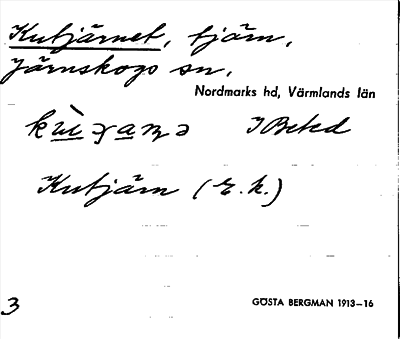 Kutjärnet, tjärn,
Järnskogs sn,
Nordmarks hd, Värmlands län
Kutjärn (E.k.)
3
GÖSTA BERGMAN 1913–16